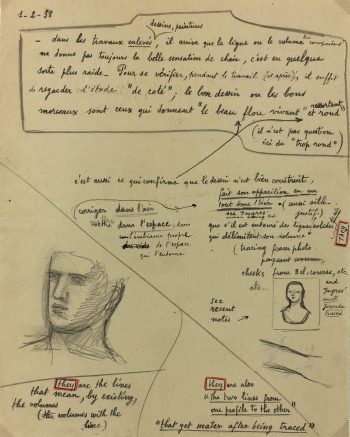 1-2-38
dessins, peintures
- dans les travaux enlevés, il arrive que le ligne ou le volume
ne donne pas toujours la belle sensation de chair, c'est en quelque
sorte plus raide - Pour se vérifier, pendant le travail (et après), il suffit
de regarder l'étude "de côté"; le bon dessin ou les bons
morceaux sont ceux qui donnent "le beau flou vivant"
et rond"
(il n'est pas question
ici du "trop rond")
c'est aussi ce qui confirme que le dessin n'est bien construit,
fait son apparition en un
tout dans l'
(aussi
see Ingres
corriger dans l'air
dans l'espace, dans
de l'espace
qui l'entoure
que s'il est entouré des lignes solides
qui délimitent son volume"
(tracing from photo
peasant woman,
cheeks from Bel.
etc...
They
and
Ingres
see
recent
notes →
they are the lines
that mean, by existing,
the volumes
(the volumes with the
line)
they are also
"the two lines from
one profile to the other"
"that get neater after being traced"